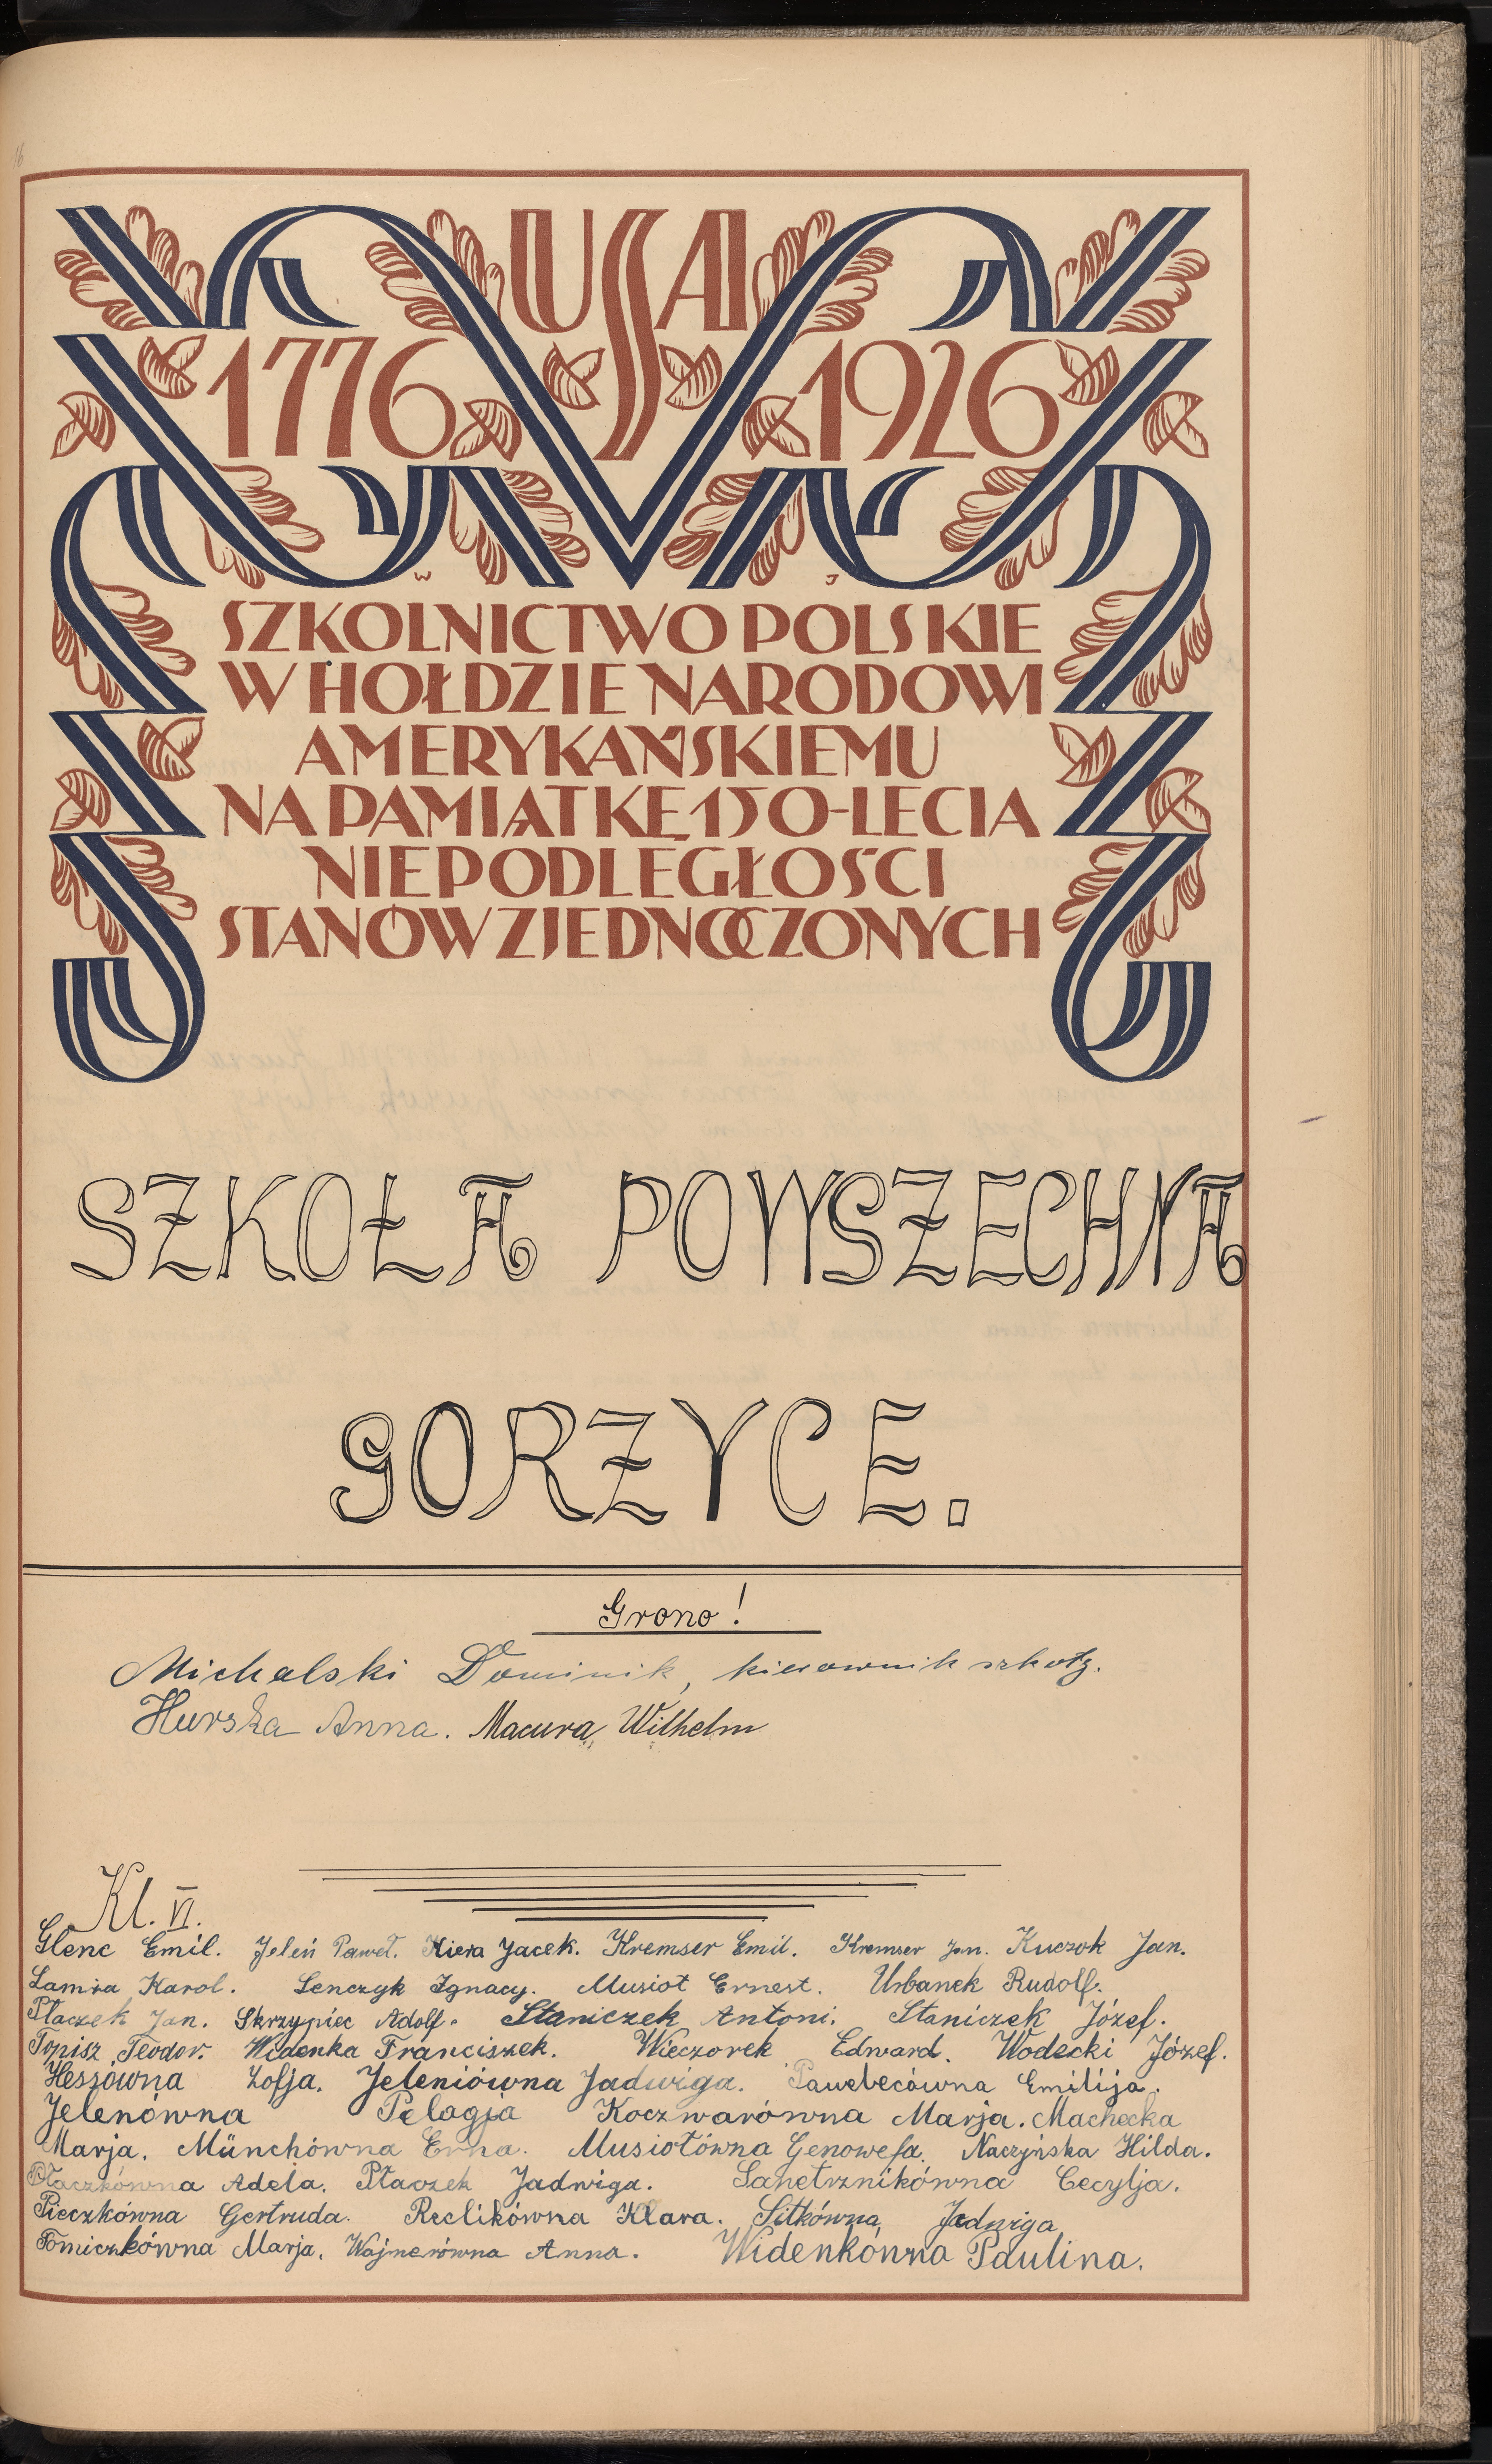 16
USA
1776 1926
W J
SZKOLNICTWO POLSKIE
W HOŁDZIE NARODOWI
AMERYKAŃSKIEMU
NA PAMIĄTKĘ 150-LECIA
NIEPODLEGŁOŚCI
STANÓW ZJEDNOCZONYCH
SZKOŁA POWSZECHNA
GORZYCE.
Grono!
Michalski Dominik, kierownik szkoły.
Hurska Anna. Macura, Wilhelm
Kl. VI.
Glenc Emil. Jeleń Paweł. Kiera Jacek. Kremser Emil. Kremser Jan. Kuczok Jan.
Lamża Karol. Lenczyk Ignacy. Musioł Ernest. Urbanek Rudolf.
Płaczek Jan. Skrzypiec Adolf. Staniczek Antoni. Staniczek Józef.
Topisz Teodor. Widenka Franciszek. Wieczorek Edward. Wodecki Józef.
Heszówna Zofja. Jeleniówna Jadwiga. Pawelecówna Emilija.
Jelenówna Pelagja Koczwarówna Marja. Machecka
Marja. Münchówna Erna. Musiołówna Genowefa. Naczyńska Hilda.
Płaczkówna Adela. Płaczek Jadwiga. Sanetrznikówna Cecylja.
Pieczkówna Gertruda. Reclikówna Klara. Sitkówna Jadwiga
Tomiczkówna Marja. Wajnerówna Anna. Widenkówna Paulina.